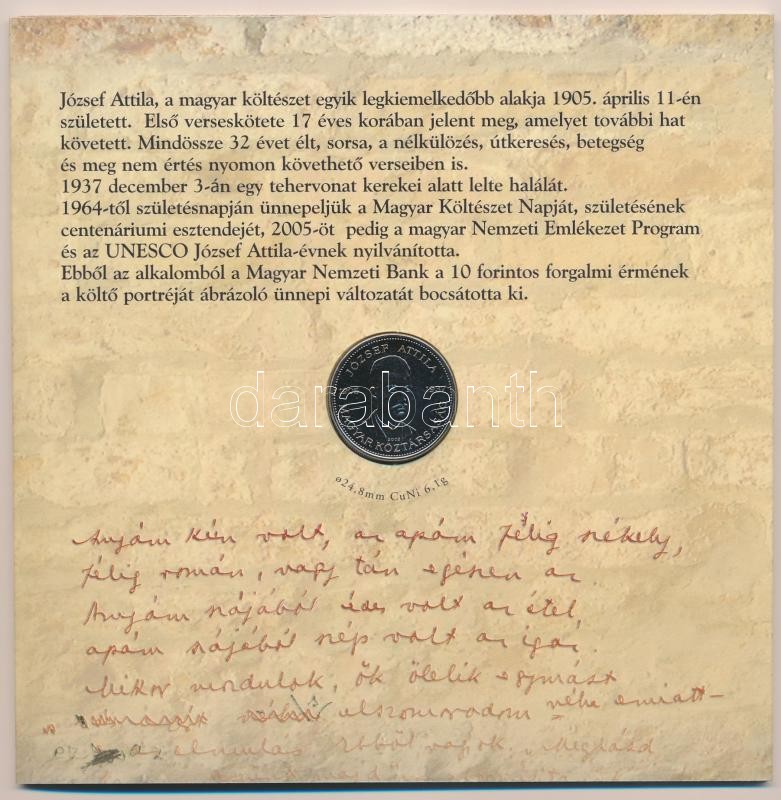 József Attila, a magyar költészet egyik legkiemelkedőbb alakja 1905. április 11-én
született. Első verseskötete 17 éves korában jelent meg, amelyet további hat
követett. Mindössze 32 évet élt, sorsa, a nélkülözés, útkeresés, betegség
és meg nem értés nyomon követhető verseiben is.
1937 december 3-án egy tehervonat kerekei alatt lelte halálát.
1964-től születésnapján ünnepeljük a Magyar Költészet Napját, születésének
centenáriumi esztendejét, 2005-öt pedig a magyar Nemzeti Emlékezet Program
és az UNESCO József Attila-évnek nyilvánította.
Ebből az alkalomból a Magyar Nemzeti Bank a 10 forintos forgalmi érmének
a költő portréját ábrázoló ünnepi változatát bocsátotta ki.
JÓZSEF ATTILA
darabanth
MAGYAR KÖZTÁRSASÁG
ø24,8mm CuNi 6,1g
Anyám kún volt, az apám félig székely,
félig román, vagy tán egészen az.
Anyám szájából édes volt az étel,
apám szájából szép volt az igaz.
Mikor mozdulok, ők ölelik egymást
elszomorodom néha emiatt –
az elmulás. Ebből vagyok. Meglásd